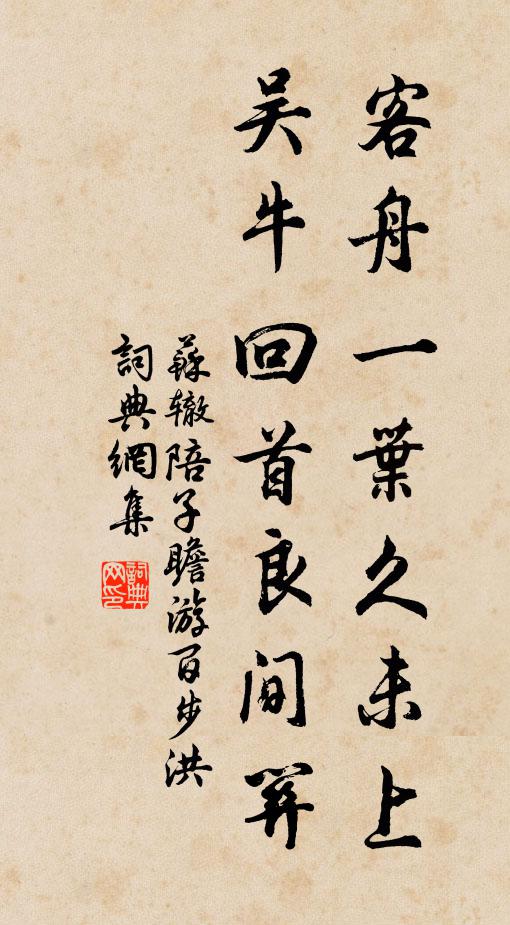 客舟一葉久未上
吴牛回首良間關
蘇辙陪子瞻游百步洪
詞典網集
詞典网印